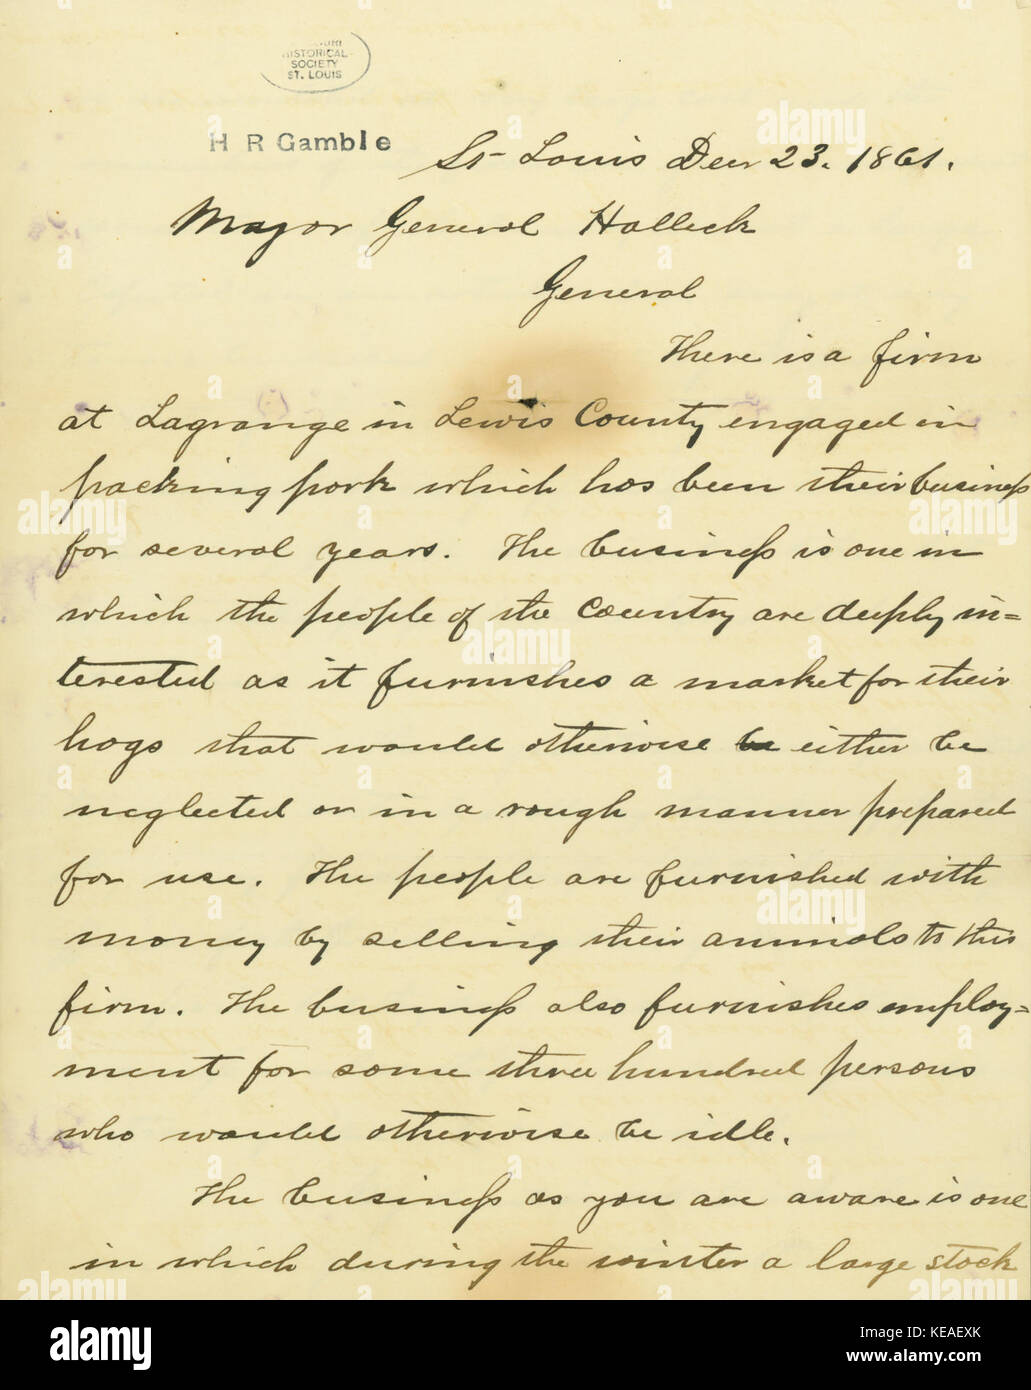 HISTORICAL
SOCIETY
ST. LOUIS
H R Gamble
St Louis Decr 23. 1861.
Major General Halleck
General
There is a firm
at Lagrange in Lewis County engaged in
packing pork which has been their business
for several years. The business is one in
which the people of the Country are deeply in=
terested as it furnishes a market for their
hogs that would otherwise be either be
neglected or in a rough manner prepared
for use. The people are furnished with
money by selling their animals to this
firm. The business also furnishes employ=
ment for some three hundred persons
who would otherwise be idle.
The business as you are aware is one
in which during the winter a large stock
alamy
Image ID: KEAEXK
www.alamy.com